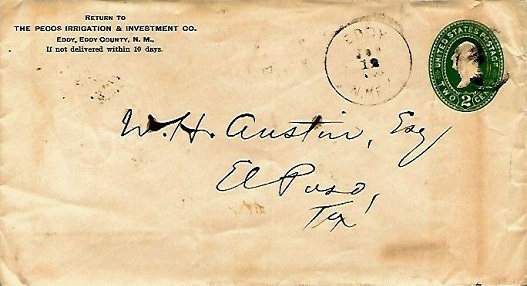 RETURN TO
THE PECOS IRRIGATION & INVESTMENT CO.
EDDY, EDDY COUNTY, N. M.,
If not delivered within 10 days.
EDDY
12
N.MEX
UNITED STATES POSTAGE
TWO 2 CENTS
W. H. Austin, Esq
El Paso,
Tex'